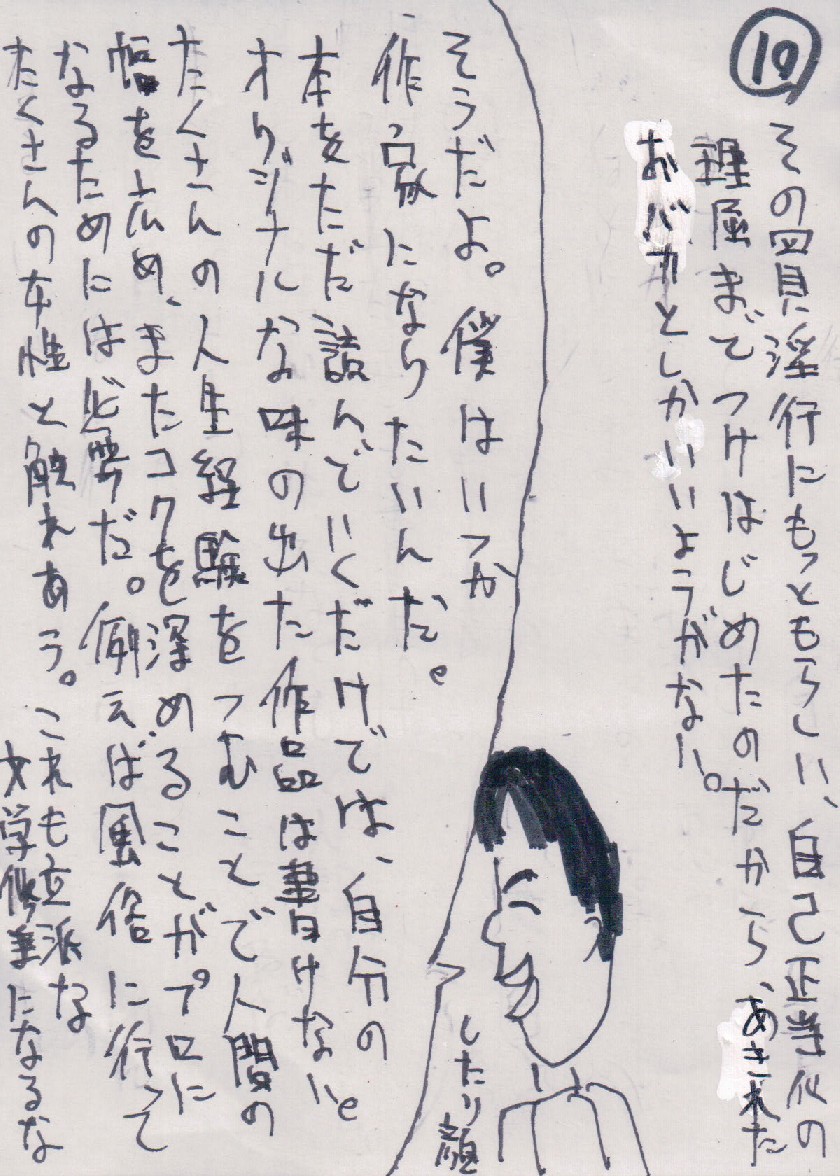 ⑲
その買淫行にもっともらしい、自己正当化の
理屈までつけはじめたのだから、あきれた
おバカとしかいいようがない。
そうだよ。僕はいつか
作家になりたいんだ。
本をただ読んでいくだけでは、自分の
オリジナルな味の出た作品は書けない。
たくさんの人生経験をつむことで人間の
幅を広め、またコクを深めることがプロに
なるためには必要だ。例えば風俗に行って
たくさんの女性と触れあう。これも立派な
文学修業になるな
したり顔